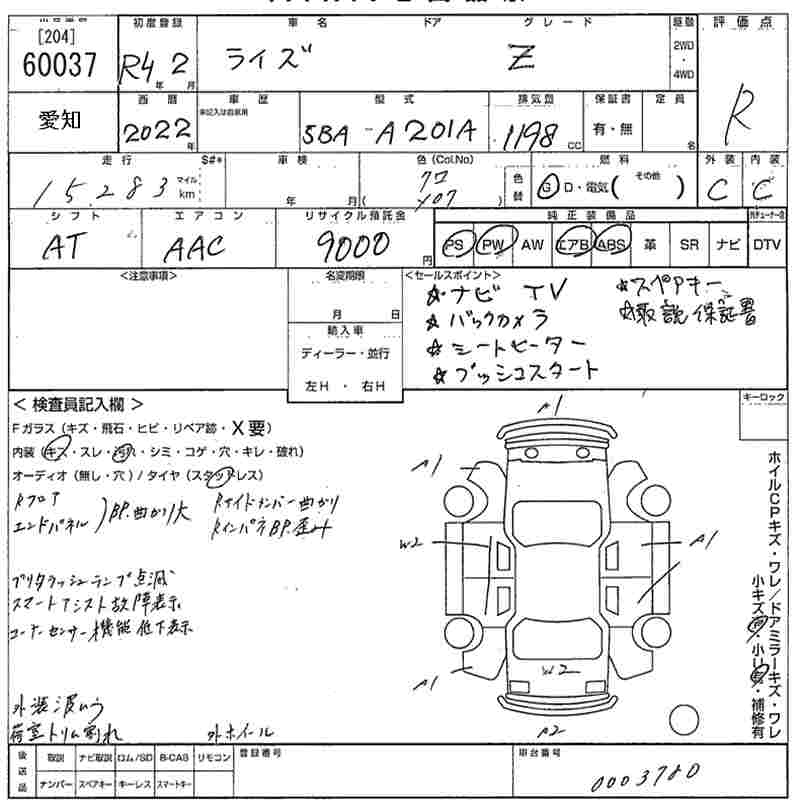 [204]
60037
初度登録
R4 2
年 月
車名
ライズ
ドア
グレード
Z
駆動
2WD
・
4WD
評価点
R
愛知
西暦
2022
年
車歴
未記入は自家用
型式
5BA-A201A
排気量
1198
CC
保証書
有・無
定員
名
走行
15,283
マイル
km
S#*
車検
年 月
色(Col.No)
クロ
( X07 )
色替
燃料
G D・電気( その他 )
外装
C
内装
C
シフト
AT
エアコン
AAC
リサイクル預託金
9000
円
純正装備品
PS PW AW エアB ABS 革 SR ナビ DTV
<注意事項>
名変期限
月 日
輸入車
ディーラー・並行
左H ・ 右H
<セールスポイント>
☆ナビ TV
☆バックカメラ
☆シートヒーター
☆プッシュスタート
☆スペアキー
☆取説 保証書
キーロック
< 検査員記入欄 >
Fガラス(キズ・飛石・ヒビ・リペア跡・X要)
内装(キズ・スレ・汚れ・シミ・コゲ・穴・キレ・破れ)
オーディオ(無し・穴)/タイヤ(スタッドレス)
Rフロア
エンドパネル
BP.曲がり大
Rサイドメンバー曲がり
RインパネBP.歪み
プリクラッシュランプ点滅
スマートアシスト故障表示
コーナーセンサー機能低下表示
外装汚れ
荷室トリム割れ
外ホイール
A1
A1
W2
A1
A1
W2
A2
ホイルCPキズ・ワレ/ドアミラーキズ・ワレ
小キズ有・小凹有・補修有
後送品
取説 ナビ取説 ロム/SD B-CAS リモコン
ナンバー スペアキー キーレス スマートキー
登録番号
車台番号
0003780